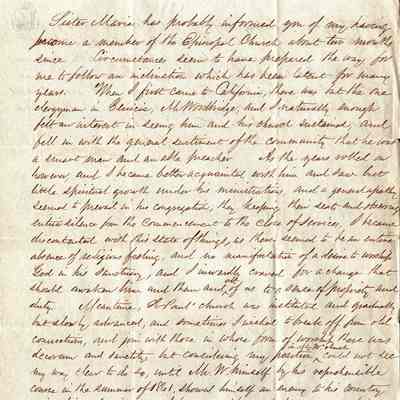 Sister Maria has probably informed you of my having
become a member of the Episcopal Church about two months
since Circumstances seem to have prepared the way for
me to follow an inclination which has been latent for many
years. When I first came to California, there was but the one
clergyman in Benicia, Mr Woodbridge, and I naturally enough
felt an interest in seeing him and his church sustained, and
fell in with the general sentiment of the community that he was
a smart man and an able preacher As the years rolled on
however and I became better acquainted with him and saw but
little spiritual growth under his ministrations, and a general apathy
seemed to prevail in his congregation, they keeping their seats and observing
entire silence from the Commencement to the close of Services, I became
discontented with this state of things, as there seemed to be an entire
absence of religious feeling, and no manifestation of a desire to worship
God in his Sanctuary, and I inwardly craved for a change that
should awaken him and them and all of us to a sense of propriety and
duty. Meantime, St Pauls church was instituted and gradually
but slowly advanced, and sometimes I wished to break off from old
connections, and join with those in whose form of worship there was
decorum and sanctity but considering my position could not see
my way clear to do so, until Mr. W. himself by his reprehensible
course in the summer of 1861, showed himself an enemy to his country